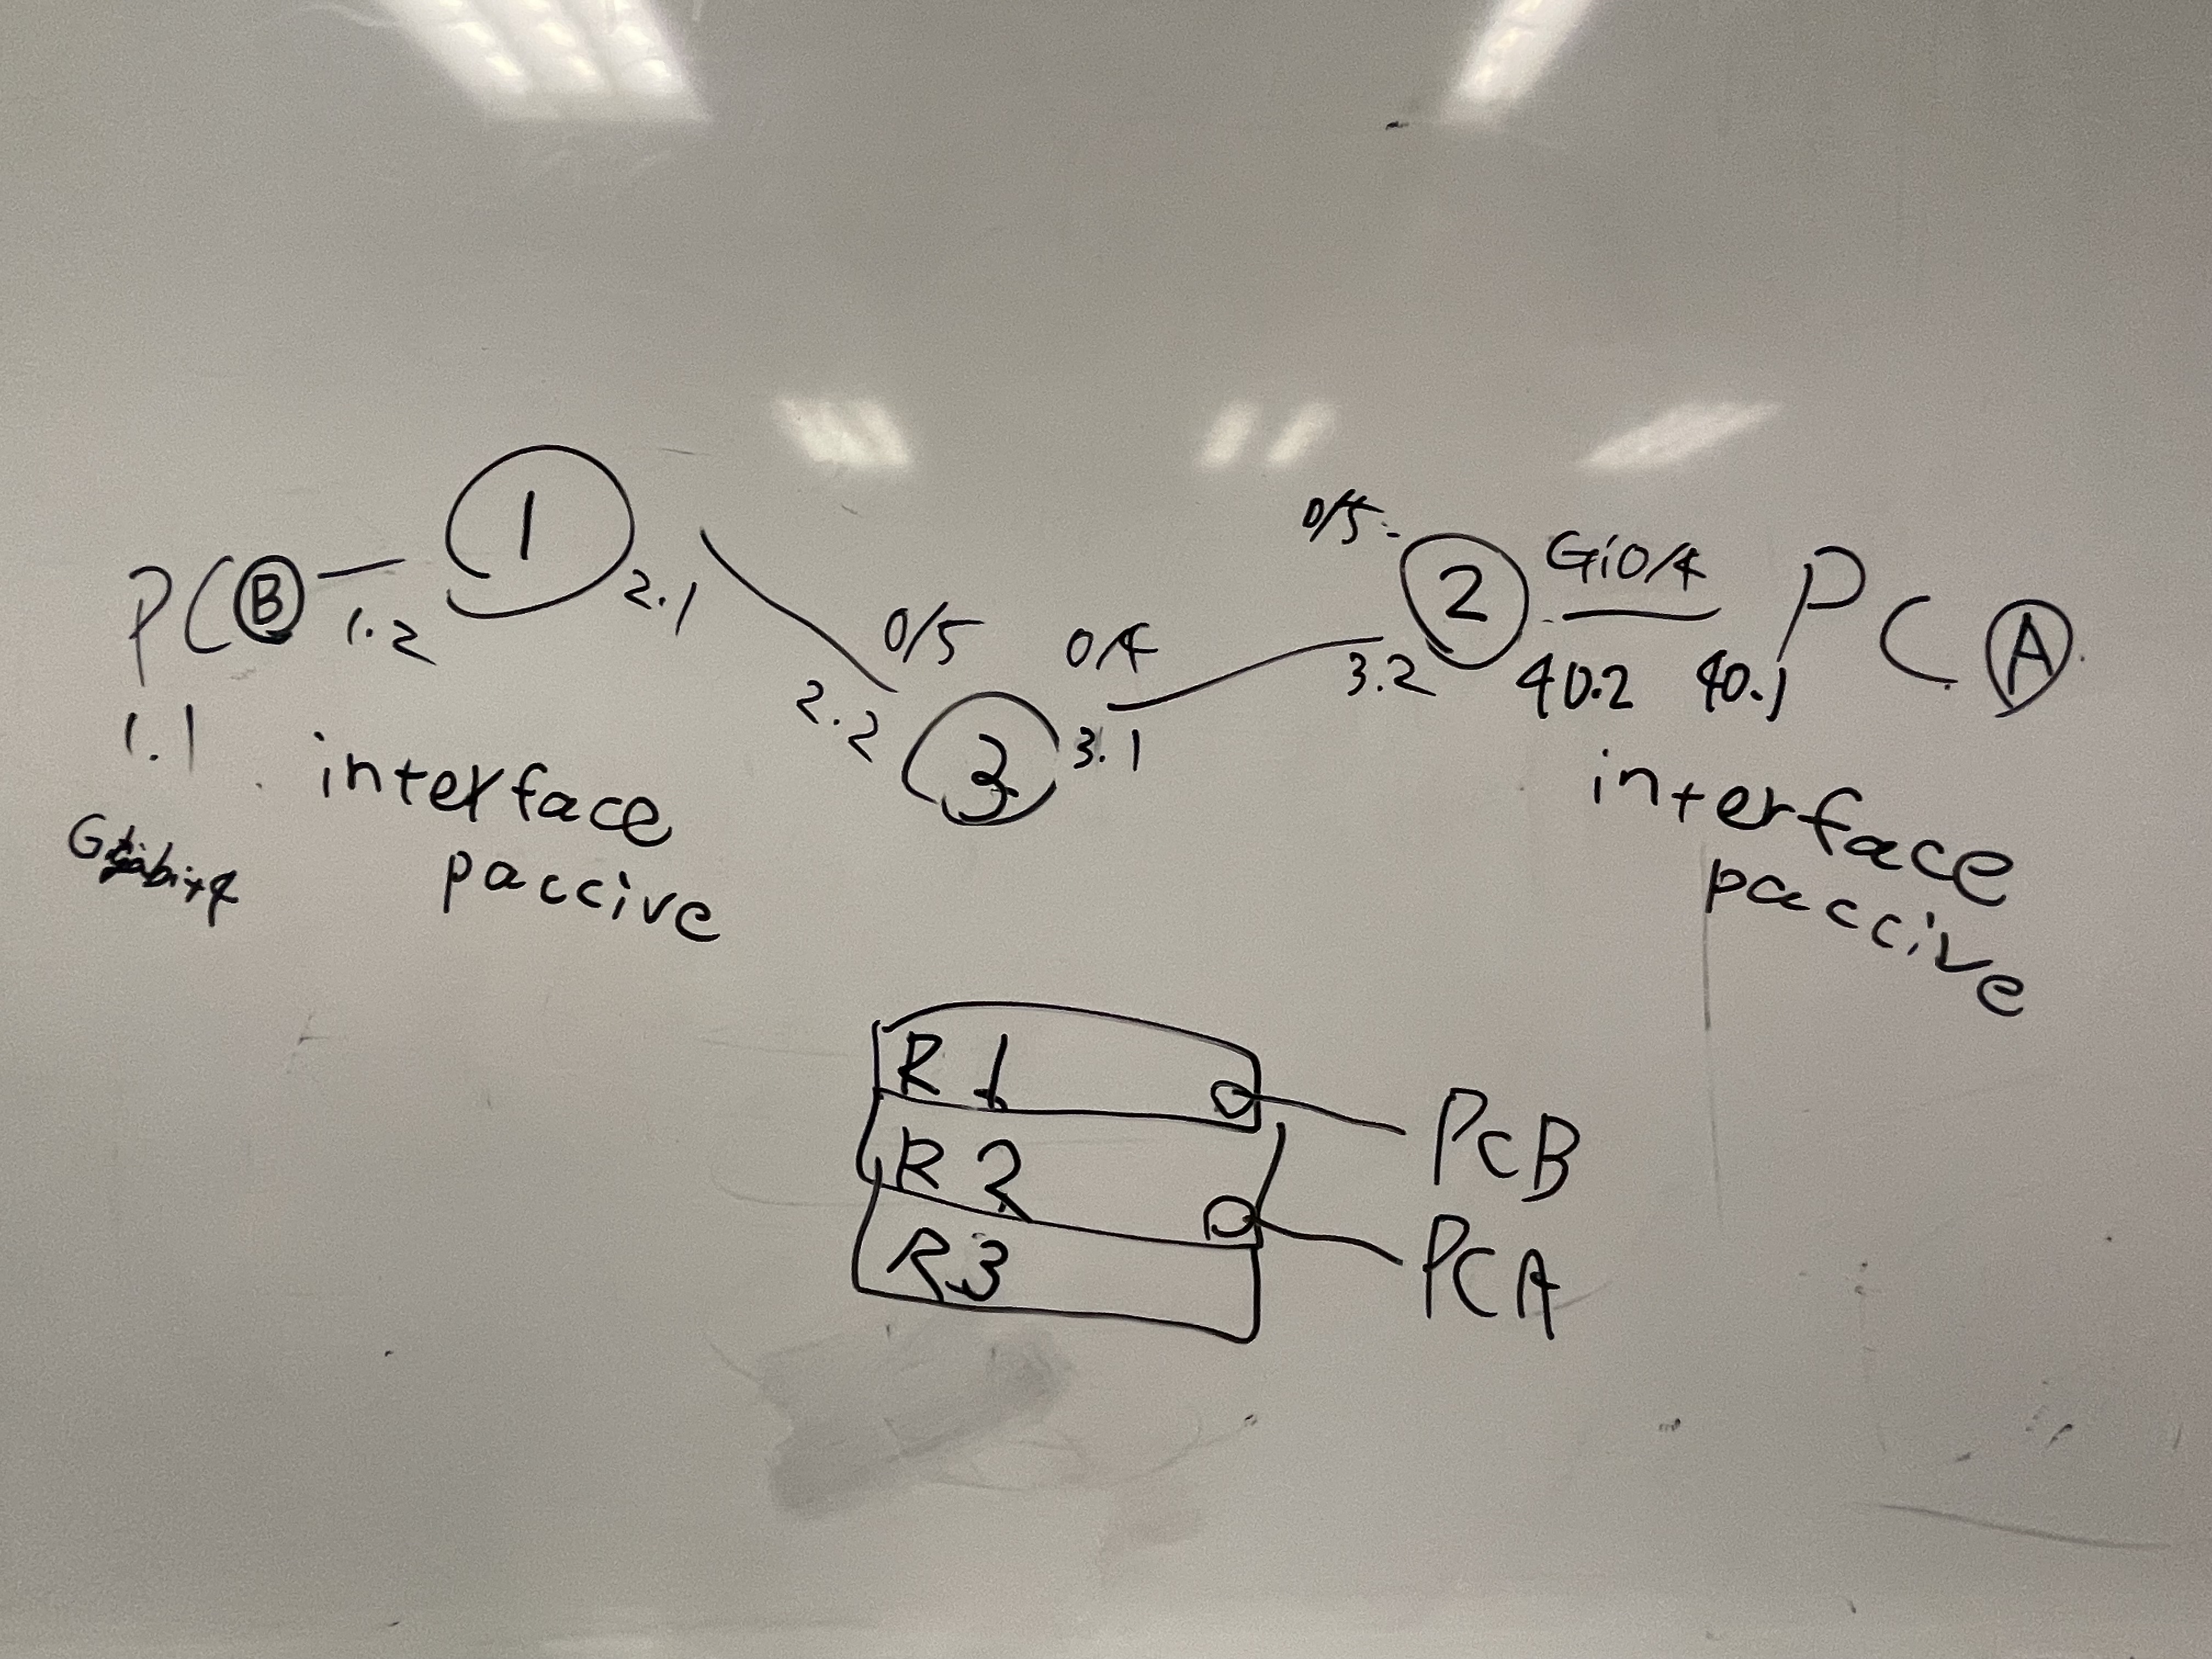 1
2.1
PC B
1.2
1.1
interface
paccive
0/5
2.2
3
0/4
3.1
0/5
2
3.2
Gi0/4
40.2
40.1
PC A
interface
paccive
R1
R2
R3
PCB
PCA